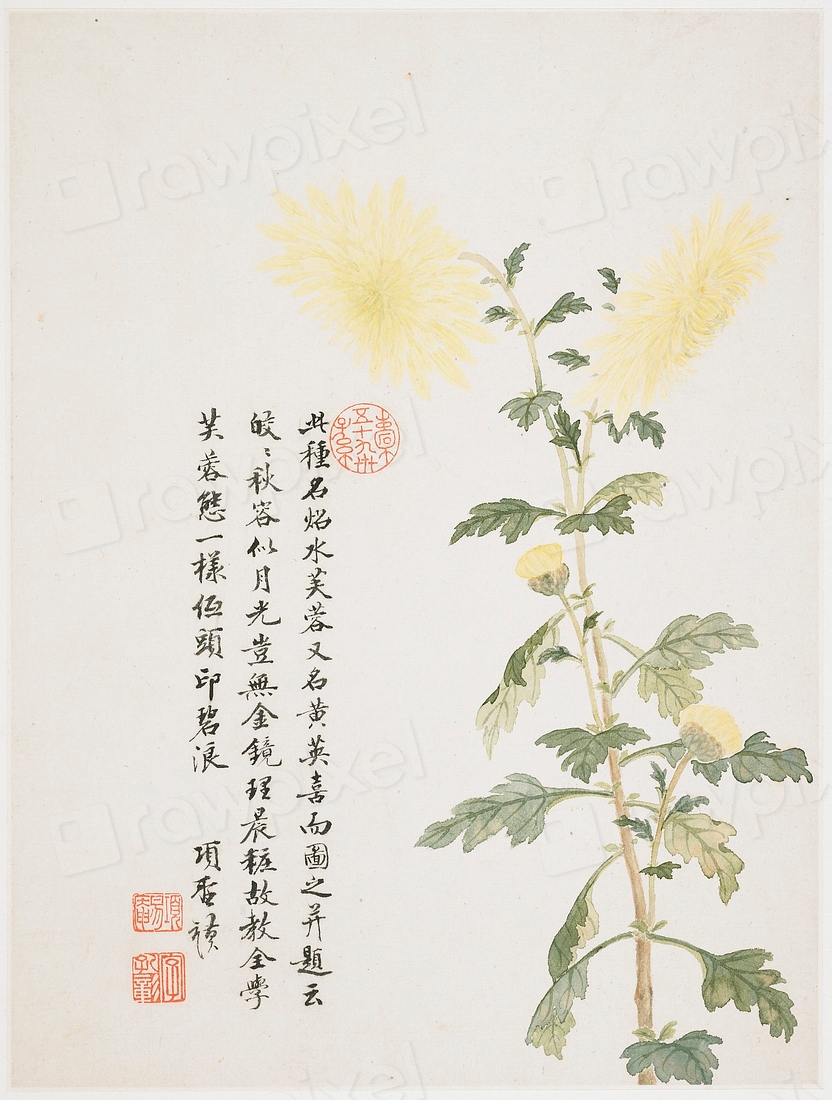 此種名炤水芙蓉又名黃英喜而圖之并題云
皎〻秋容似月光豈無金鏡理晨粧故教全學
芙蓉態一樣低頭印碧浪
項
rawpixel